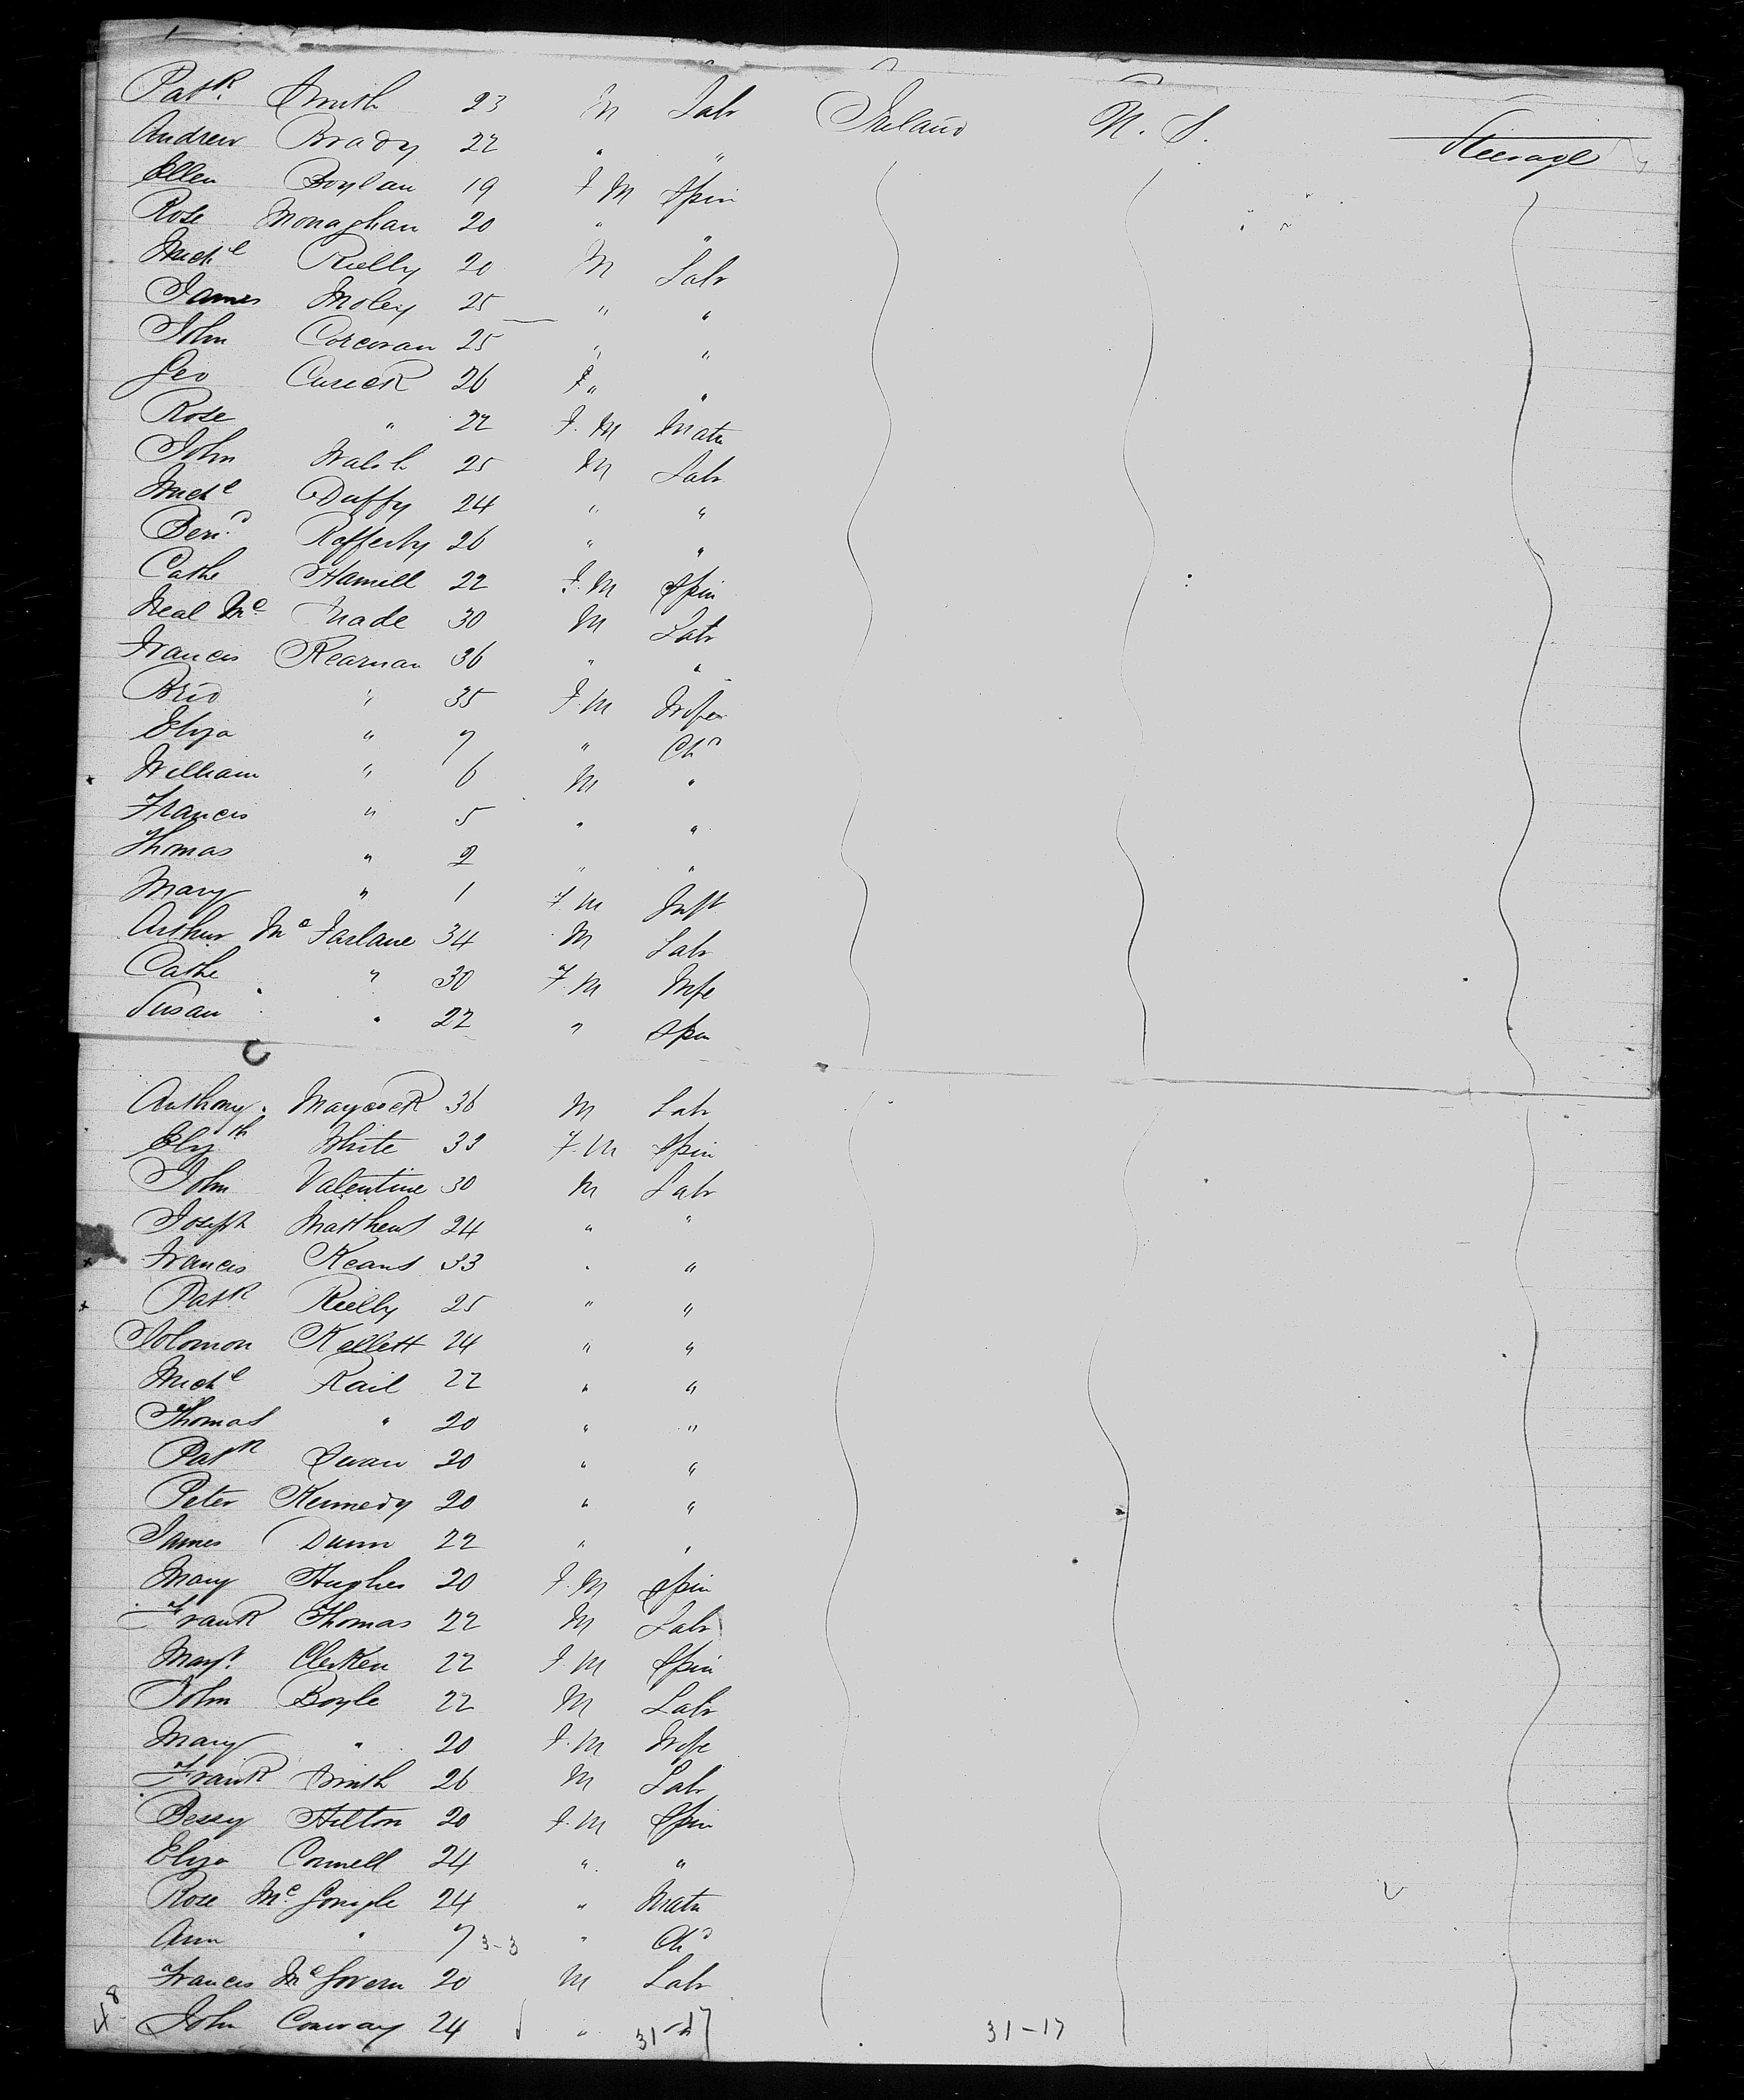 Patk. Smith 23 M Labr Ireland N. S. Steerage
Andrew Brady 22 " "
Ellen Boylan 19 F M Spin
Rose Monaghan 20 " "
Michl Rielly 20 M Labr
James Moley 25 " "
John Corcoran 25 " "
Geo Cusick 26 " "
Rose " 22 F. M Matn
John Walsh 25 M Labr
Michl Duffy 24 " "
Bernd Rafferty 26 " "
Cathe Hamill 22 F. M Spin
Neal Mc 30 M Labr
Francis Kearnan 36 " "
Brid " 35 F. M Wife
Eliza " 7 " Chd
William " 6 M "
Francis " 5 " "
Thomas " 2 " "
Mary " 1 F M Inft
Arthur Mc Farlane 34 M Labr
Cathe " 30 F. M Wife
Susan " 22 " Spin
Anthony Maycock 36 M Labr
Elizth White 33 F. M Spin
John Valentine 30 M Labr
Joseph Matthews 24 " "
Francis Keans 33 " "
Patk Rielly 25 " "
Solomon Kellett 24 " "
Michl Rail 22 " "
Thomas " 20 " "
Patk Swan 20 " "
Peter Kennedy 20 " "
James Dunn 22 " "
Mary Hughes 20 F. M Spin
Frank Thomas 22 M Labr
Margt. Clerken 22 F. M Spin
John Boyle 22 M Labr
Mary " 20 F. M Wife
Frank Smith 26 M Labr
Bessy Hilton 20 F. M Spin
Eliza Connell 24 " "
Rose Mc Gonigle 24 " Matn
Ann " 7 3-3 " Chd
Francis Mc Govern 20 M Labr
48 John Conway 24 " 31-17 31-17